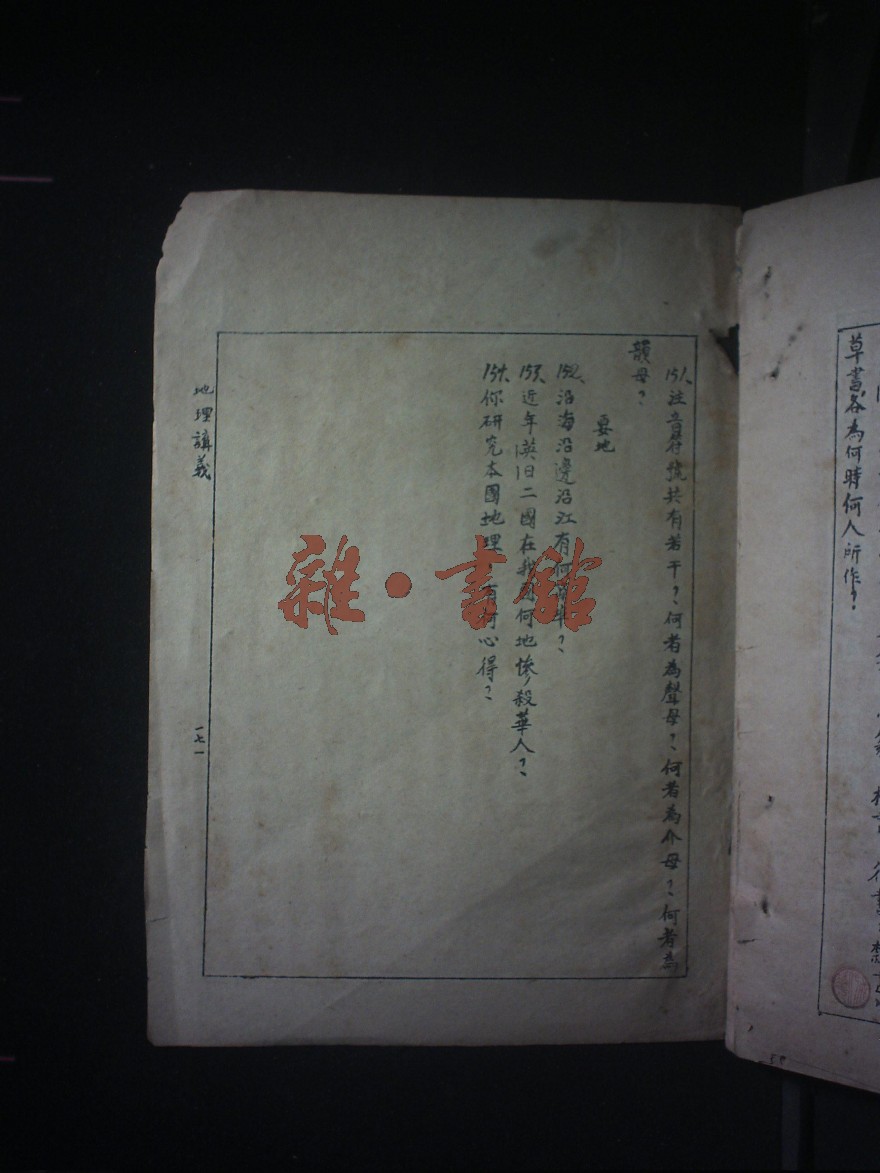 草書各為何時何人所作？
151、注音符號共有若干？何者為聲母？何者為介母？何者為
韻母？
要地
152、沿海沿邊沿江有何
153、近年英日二國在我國何地慘殺華人？
154、你研究本國地理有何心得？
地理講義
一七一
雜·書館